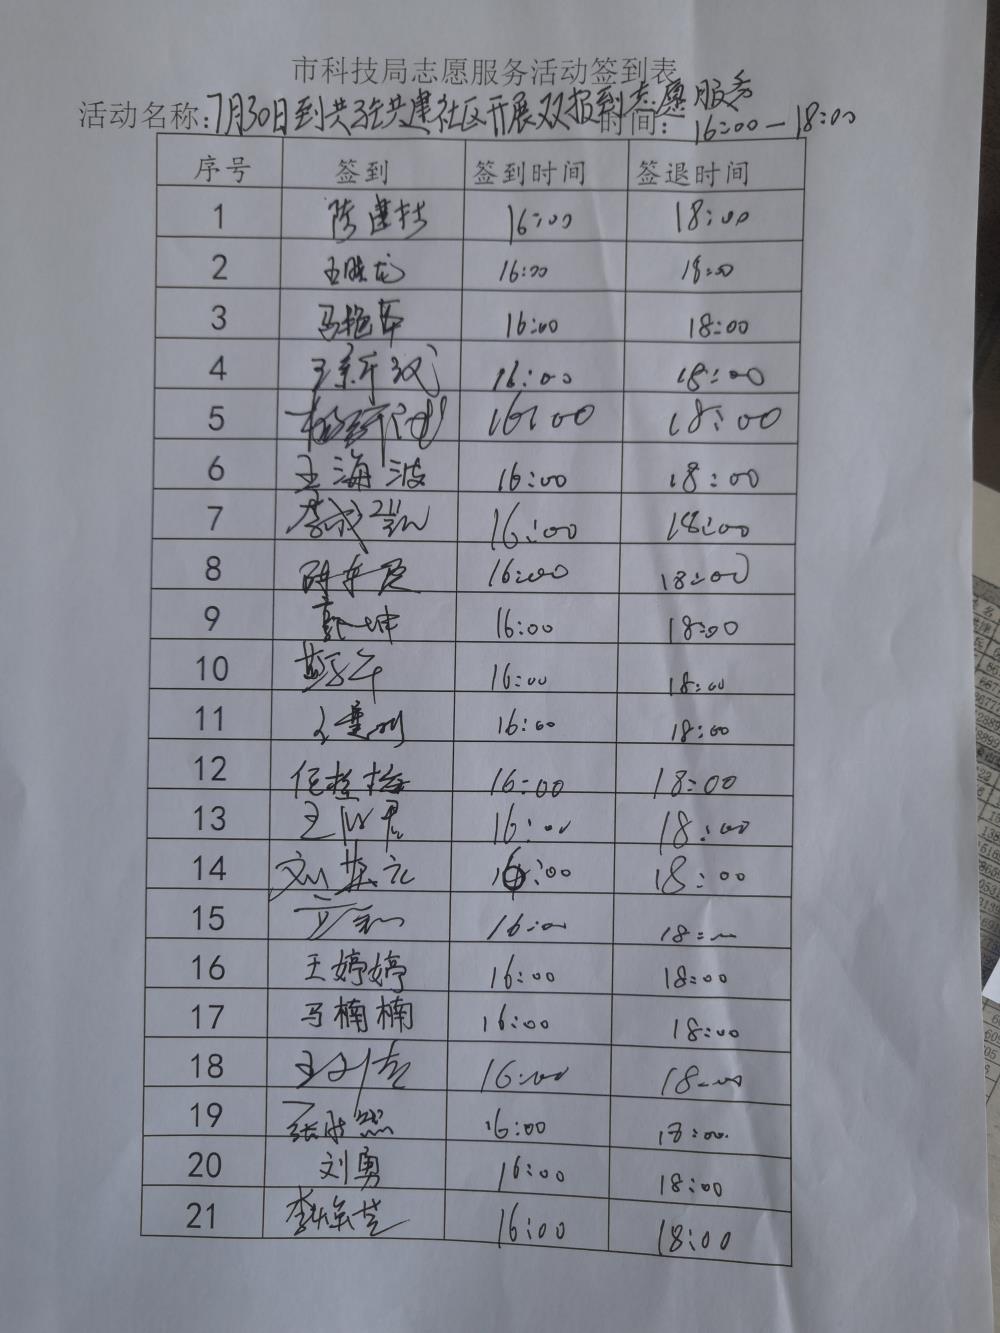 市科技局志愿服务活动签到表
活动名称:7月30日到共驻共建社区开展双报到志愿服务 时间: 16:00-18:00
序号 签到 签到时间 签退时间
1 陈建 16:00 18:00
2 王晓龙 16:00 18:00
3 马艳 16:00 18:00
4 王 16:00 18:00
5 杨 16:00 18:00
6 王海波 16:00 18:00
7 李成 16:00 18:00
8 16:00 18:00
9 郭坤 16:00 18:00
10 16:00 18:00
11 16:00 18:00
12 16:00 18:00
13 王 16:00 18:00
14 刘 16:00 18:00
15 16:00 18:00
16 王婷婷 16:00 18:00
17 马楠楠 16:00 18:00
18 王 16:00 18:00
19 张 16:00 18:00
20 刘勇 16:00 18:00
21 李 16:00 18:00